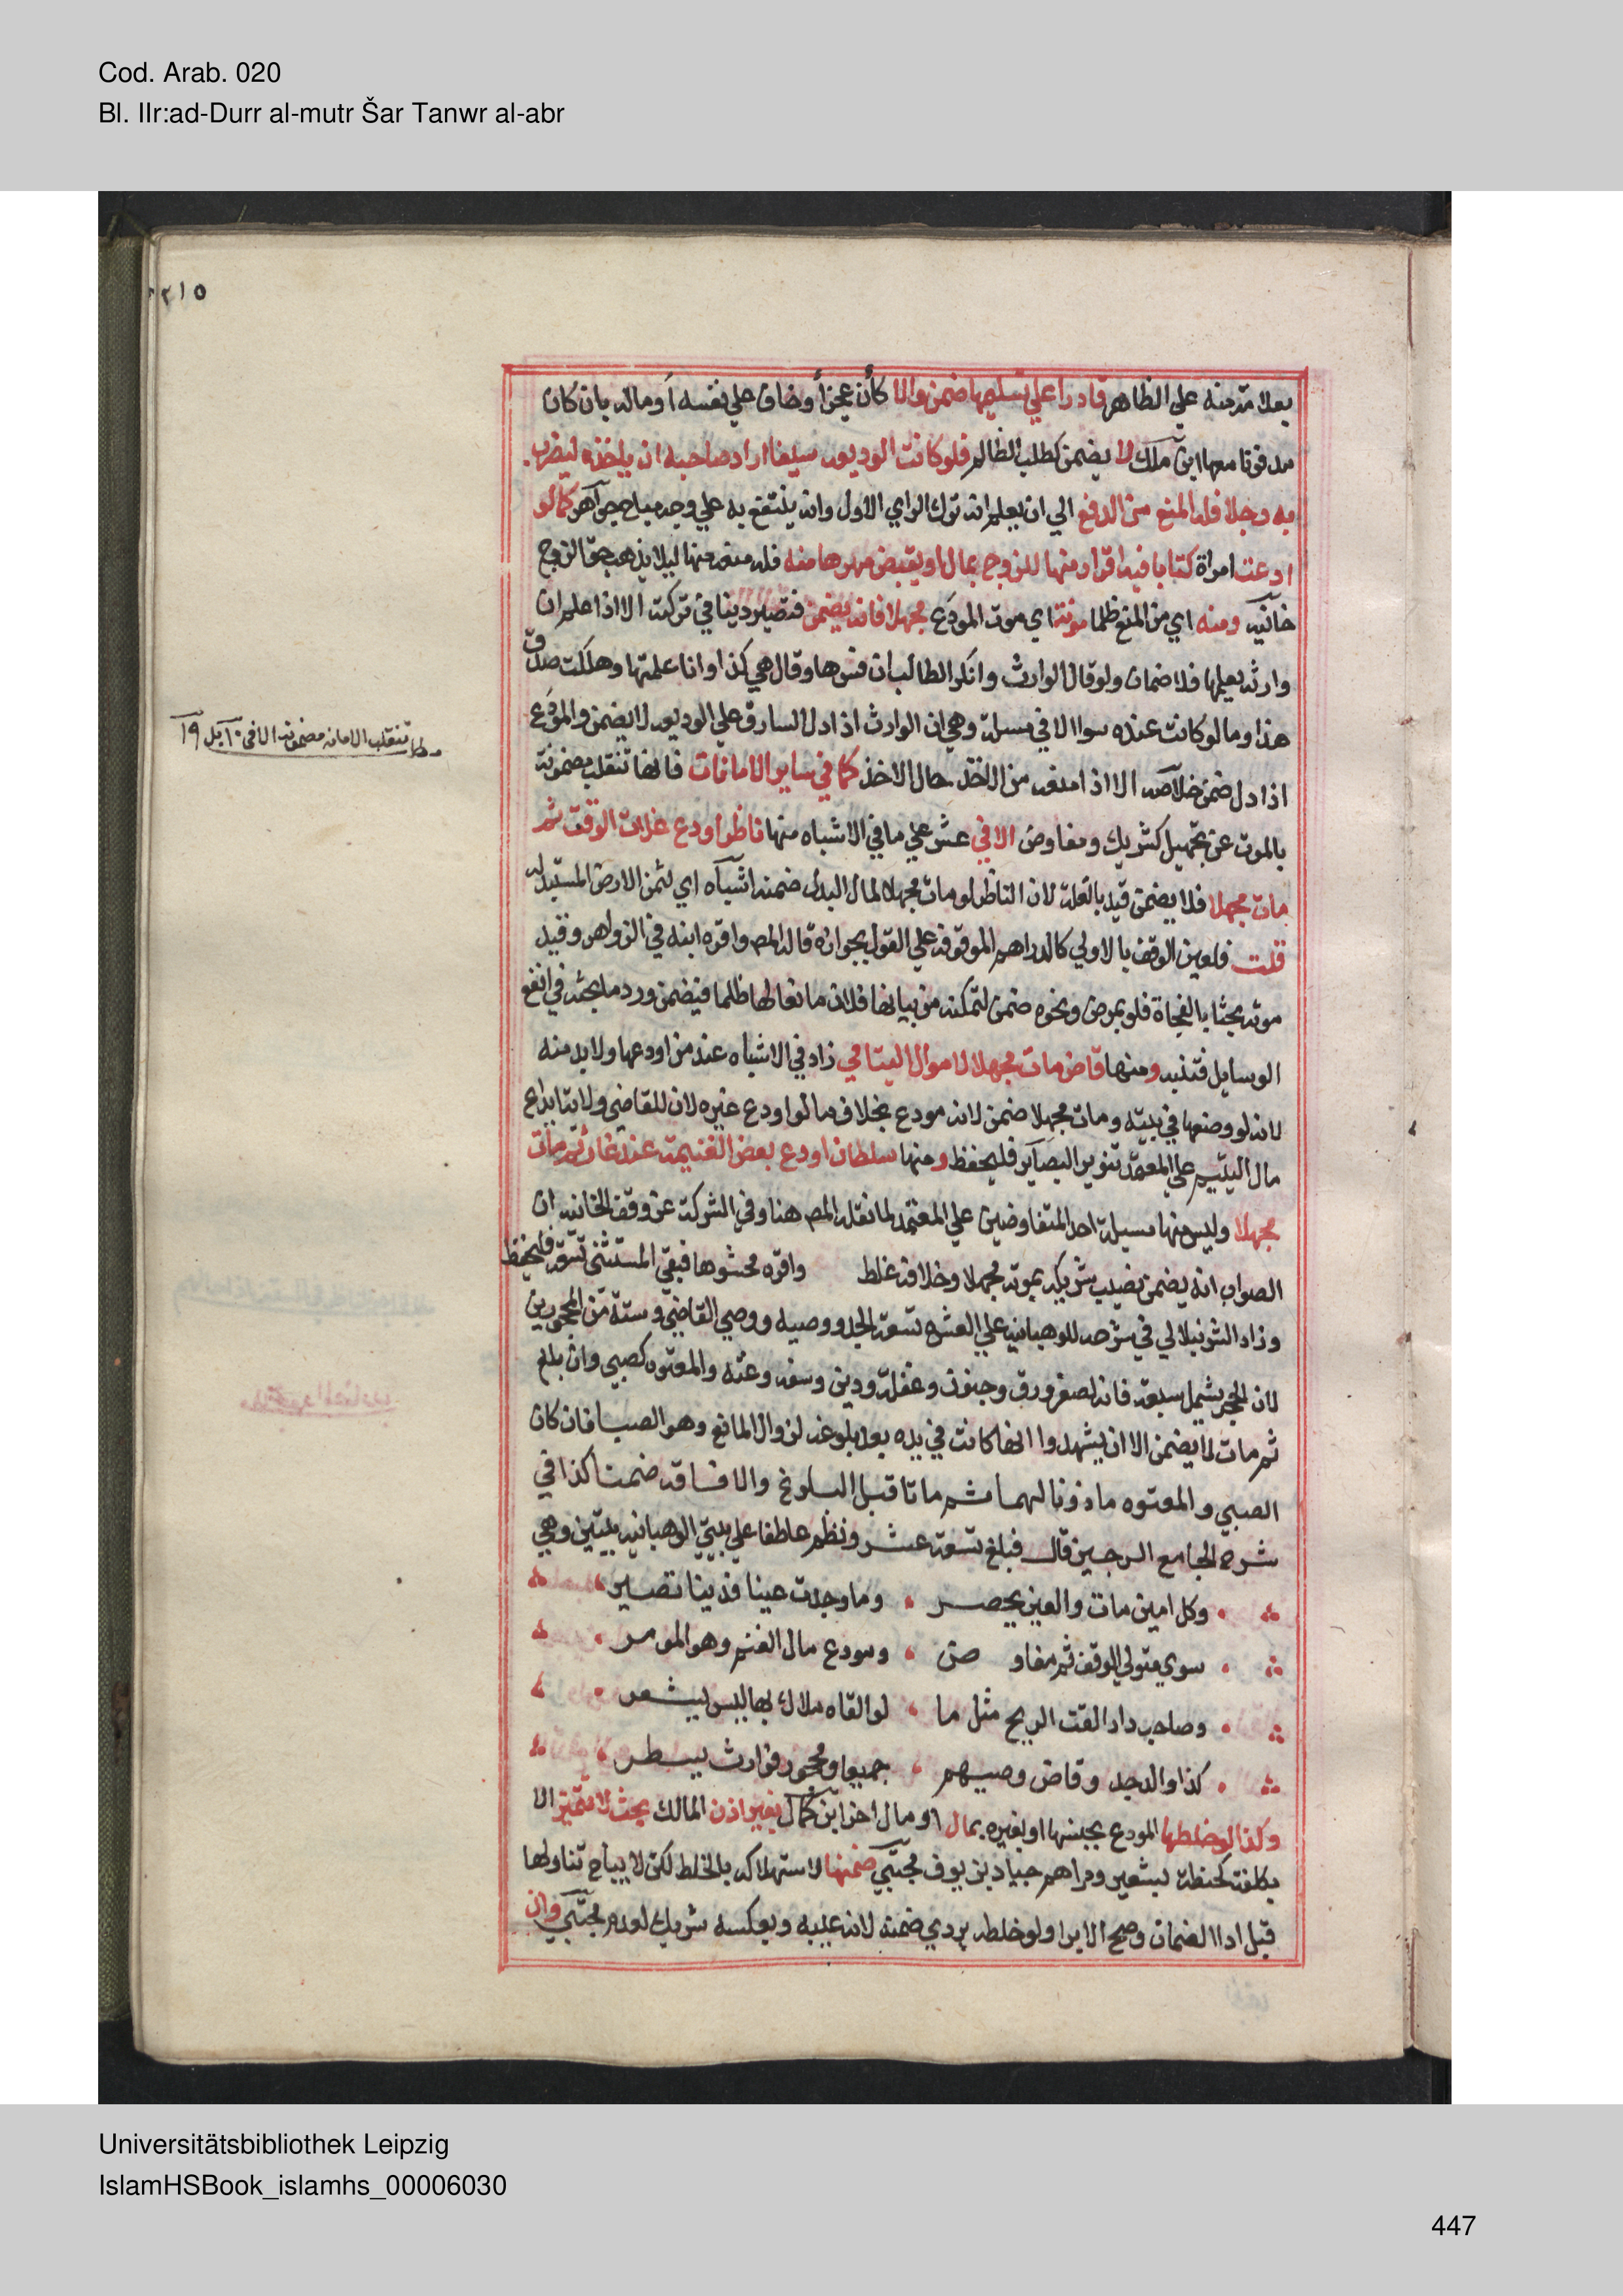 Cod. Arab. 020
Bl. IIr:ad-Durr al-mutr Šar Tanwr al-abr
٢١٥
بعلامة منه علي الظاهر قادرا علي تسليمها ضمن والا كأن عجز أو خاف علي نفسه أو ماله بان كان
مدفونا معها ابن ملك لا يضمن كطلب الظالم فلو كانت الوديعة سيفا اراد صاحبه ان ياخذه ليضرب
به رجلا فله المنع من الدفع الي ان يعلم انه ترك الراي الاول وانه ينتفع به علي وجه مباح جواهر كما لو
ادعت امراة كتابا فيه اقرار منها للزوج بمال او بقبض مهرها منه فله منعه منها ليلا يذهب حق الزوج
خانيه ومنه اي من المنع ظلما موته اي موت المودَع مجهلا فانه يضمن فتصير دينا في تركته الا اذا علم ان
وارثه يعلمها فلا ضمان ولو قال الوارث وانكر الطالب ان فسرها وقال هي كذا وانا علمتها وهلكت صدق
هذا وما لو كانت عنده سوا الا في مسئلة وهي ان الوارث اذا دل السارق علي الوديعة لا يضمن والمودَع
اذا دل ضمن خلاصه الا اذا منعه من الاخذ حال الاخذ كما في ساير الامانات فانها تنقلب مضمونة
مطلب تنقلب الامانه مضمونه الا في ١٠ بل ١٩
بالموت عن تجهيل كشريك ومفاوض الا في عشر علي ما في الاشباه منها ناظر اودع غلات الوقف ثم
مات مجهلا فلا يضمن قيد بالغلة لان الناظر لو مات مجهلا لمال البدل ضمنه اشباه اي لثمن الارض المستبدله
قلت فلعين الوقف بالاولي كالدراهم الموقوفة علي القول بجوازه قاله المصـ واقره ابنه في الزواهر وقيد
موته بحثا بالفجاة فلو بمرض ونحوه ضمن لتمكنه من بيانها فلان مانعا لها ظلما فيضمن ورد ما بحثه في انفع
الوسايل فتنبه ومنها قاض مات مجهلا لاموال اليتامي زاد في الاشباه عند من اودعها ولا بد منه
لانه لو وضعها في بيته ومات مجهلا ضمن لانه مودع بخلاف ما لو اودع غيره لان للقاضي ولاية ايداع
مال اليتيم علي المعتمد تنوير البصاير فليحفظ ومنها سلطان اودع بعض الغنيمة عند غاز ثم مات
مجهلا وليس منها مسيلة احد المتفاوضين علي المعتمد لما نقله المصـ هنا وفي الشركة عن وقف الخانيه ان
الصواب انه يضمن نصيب شريكه بموته مجهلا وخلافه غلط واقره محشوها فبقي المستثني تسعة فليحفظ
وزاد الشرنبلالي في شرحه للوهبانيه علي العشره تسعة الجد ووصيه ووصي القاضي وستة من المحجورين
لان الحجر يشمل سبعة فانه لصغر ورق وجنون وغفلة ودين وسفه وعته والمعتوه كصبي وان بلغ
ثم مات لا يضمن الا ان يشهدوا انها كانت في يده بعد بلوغه لزوال المانع وهو الصبا فان كان
الصبي والمعتوه ماذونا لهما ثم ماتا قبل البلوغ والافاقه ضمنا كذا في
شرح الجامع الوجيز قال فبلغ تسعة عشر ونظم عاطفا علي بيتي الوهبانيه بيتين وهي
وكل امين مات والعين يحصر ، وما وجدت عينا فدينا تصير
سوي متولي الوقف ثم مفاو ضن ، ومودع مال الغنم وهو المومر
وصاحب دار القت الريح مثل ما ، لو القاه ملاك بها ليس يشعر
كذا والد جد وقاض وصيهم ، جميعا ومحجور فوارث يسطر
وكذا لو خلطها المودع بجنسها او بغيره بمال او مال اخر ابن كمال بغير اذن المالك بحيث لا تتميز الا
بكلفة كحنطة بشعير ودراهم جياد بزيوف مجتبي ضمنها لاستهلاكه بالخلط لكن لا يباح تناولها
قبل ادا الضمان وصح الابرا ولو خلطه بردي ضمنه لانه عيبه وبعكسه شريك لعدمه مجتبي وان
Universitätsbibliothek Leipzig
IslamHSBook_islamhs_00006030
447